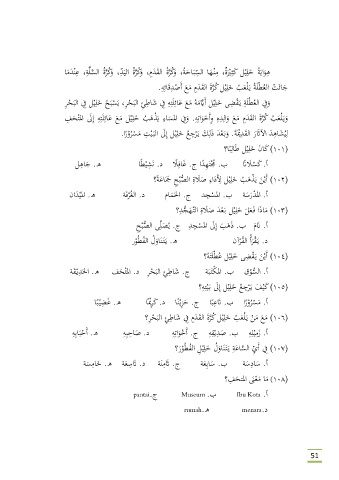 هِوَايَةُ خَلِيْلٍ كَثِيْرَةٌ، مِنْهَا السِّبَاحَةُ، وَكُرَّةُ القَدَمِ، وَكُرَّةُ اليَدِّ، وَكُرَّةُ السَّلَّةِ، عِنْدَمَا
جَائَتْ العُطْلَةُ يَلْعَبُ خَلِيْلٌ كُرَّةَ القَدَمِ مَعَ أَصْدِقَائِهِ.
وَفِي العُطْلَةِ يَقْضِى خَلِيْلٌ أَيَّامَهُ مَعَ عَائِلَتِهِ فِي شَاطِئِ البَحْرِ، يَسْبَحُ خَلِيْلٌ فِي البَحْرِ
وَيَلْعَبُ كُرَّةَ القَدَمِ مَعَ وَالِدِهِ وَأَخَوَاتِهِ. وَفِي المَسَاءِ يَذْهَبُ خَلِيْلٌ مَعَ عَائِلَتِهِ إِلَى المُتْحَفِ
لِيُشَاهِدَ الآثَارَ القَدِيْمَةَ. وَبَعْدَ ذَلِكَ يَرْجِعُ خَلِيْلٌ إِلَى البَيْتِ مَسْرُوْرًا.
(١٠١) كَانَ خَلِيْلٌ طَالِبًا؟
أ. كَسْلَانًا ب. مُجْتَهِدًا ج. غَافِلًا د. نَشِيْطًا هـ. جَاهِل
(١٠٢) أَيْنَ يَذْهَبُ خَلِيْلٌ لِأَدَاءِ صَلَاةِ الصُّبْحِ جَمَاعَةً؟
أ. المَدْرَسَة ب. المَسْجِد ج. الحَمَام د. الغُرْفَة هـ. المَيْدَان
(١٠٣) مَاذَا فَعَلَ خَلِيْلٌ بَعْدَ صَلَاةِ التَّهَجُّدِ؟
أ. نَامَ ب. ذَهَبَ إِلَى المَسْجِدِ ج. يُصَلِّى الصُّبْحَ
د. يَقْرَأُ القُرْآن هـ. يَتَنَاوَلُ الفَطُوْر
(١٠٤) أَيْنَ يَقْضِى خَلِيْلٌ عُطْلَتَهُ؟
أ. السُّوْق ب. المَكْتَبَة ج. شَاطِئِ البَحْر د. المُتْحَف هـ. الحَدِيْقَة
(١٠٥) كَيْفَ يَرْجِعُ خَلِيْلٌ إِلَى بَيْتِهِ؟
أ. مَسْرُوْرًا ب. تَاعِبًا ج. حَزِيْنًا د. كَرِيْمًا هـ. غَضِيْبًا
(١٠٦) مَعَ مَنْ يَلْعَبُ خَلِيْلٌ كُرَّةَ القَدَمِ فِي شَاطِئِ البَحْرِ؟
أ. زَمِيْلِهِ ب. صَدِيْقِهِ ج. أَخَوَاتِهِ د. صَاحِبِهِ هـ. أَحْبَابِهِ
(١٠٧) فِي أَيِّ السَّاعَةِ يَتَنَاوَلُ خَلِيْلٌ الفَطُوْرَ؟
أ. سَادِسَة ب. سَابِعَة ج. ثَامِنَة د. تَاسِعَة هـ. خَامِسَة
(١٠٨) مَا مَعْنَى المُتْحَفِ؟
أ. Ibu Kota ب. Museum ج. pantai
د. menara هـ. rumah
51